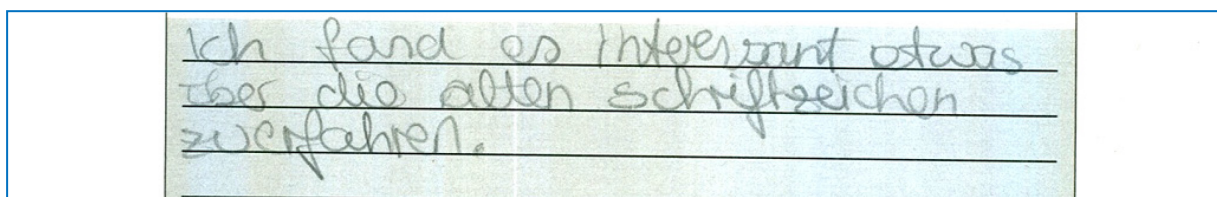 Ich fand es interessant etwas
über die alten schriftzeichen
zuerfahren.